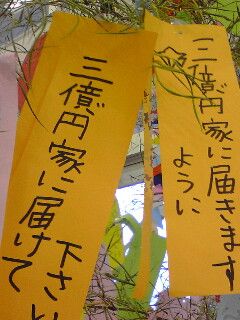 一三億円家に届きます
ように
三億円家に届けて
下さい